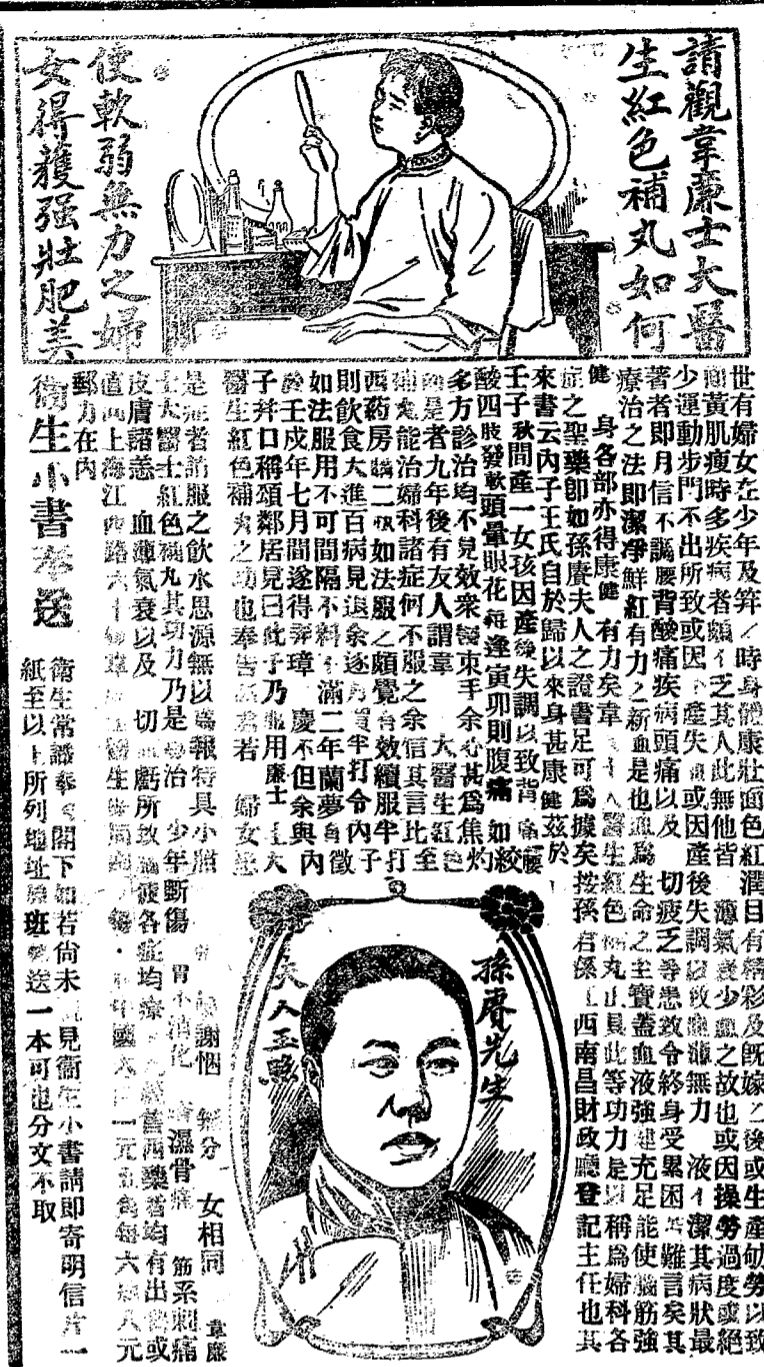 請觀韋廉士大醫
生紅色補丸如何
使軟弱無力之婦
女得獲强壯肥美
世有婦女在少年及笄之時身體康壯面色紅潤目有精彩及旣嫁之後或生產劬勞以致
面黃肌瘦時多疾病者頗不乏其人此無他皆 薄氣衰少血之故也或因操勞過度或絕
少運動步門不出所致或因 產失血或因產後失調以致血薄無力 液不潔其病狀最
著者即月信不調腰背酸痛疾病頭痛以及 切疲乏等患致令終身受累困苦難言矣其
療治之法即潔凈鮮紅有力之新血是也血爲生命之主寶蓋血液強健充足能使腦筋強
健 身各部亦得康健 有力矣韋 士大醫生紅色補丸具此等功力是以稱爲婦科各
症之聖藥卽如孫賡夫人之證書足可爲據矣按孫君係江西南昌財政廳登記主任也其
來書云內子王氏自於歸以來身甚康健茲於
壬子秋間產一女孩因產後失調以致背 腰
酸四肢發軟頭暈眼花每逢寅卯則腹痛如絞
多方診治均不見效衆醫束手余心甚爲焦灼
是者九年後有友人謂韋 大醫生紅色
補丸能治婦科諸症何不服之余信其言比至
西葯房購二瓶如法服之頗覺有效續服半打
則飲食大進百病見退余遂 買半打令內子
如法服用不可間隔不料不滿二年蘭夢有徵
於壬戌年七月間遂得弄璋 慶不但余與內
子幷口稱頌鄰居見曰此子乃 用廉士 大
醫生紅色補丸之功也奉告 若 婦女患
是症者請服之飲水思源無以爲報特具小照 謝悃 無分 女相同 韋廉
士大醫士紅色補丸其功力乃是 治 少年斲傷 胃不消化 濕骨痛 筋系刺痛
皮膚諸恙 血薄氣衰以及 切血虧所致 疲各症均療 經售西藥者均有出售或
值向上海江西路六十 韋 醫生藥局 每 中國大洋一元五角每六瓶八元
郵力在內
孫賡先生
夫人玉照
衛生小書奉送
衛生常識奉 閣下如若尚未 見衞生小書請即寄明信片一
紙至以上所列地址 班 送一本可也分文不取